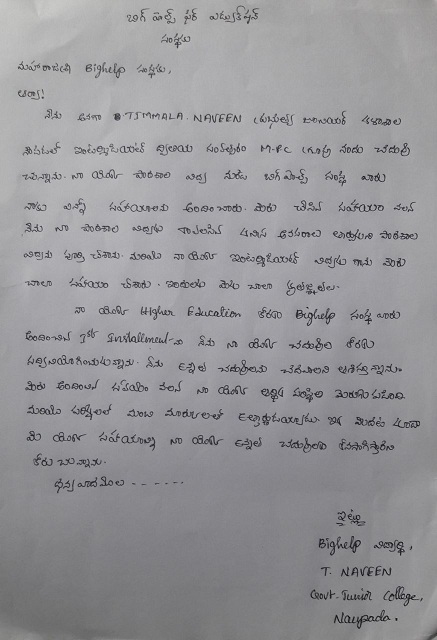 బిగ్ హెల్ప్ ఫర్ ఎడ్యుకేషన్
సంస్థకు
మహారాజశ్రీ Bighelp సంస్థకు,
ఆర్యా!
నేను అనగా TIMMALA. NAVEEN ప్రభుత్వ జూనియర్ కళాశాల
ఇంటర్మీడియట్ ద్వితీయ సంవత్సరం M.P.C గ్రూపు నందు చదువు
చున్నాను. నా యొక్క పాఠశాల విద్య నుండి బిగ్ హెల్ప్ సంస్థ వారు
నాకు ఎన్నో సహాయాలను అందించారు. మీరు చేసిన సహాయం వలన
నేను నా పాఠశాల విద్యకు కావలసిన కనీస అవసరాలు పాఠశాల
విద్యను పూర్తి చేశాను. మరియు నా యొక్క ఇంటర్మీడియట్ విద్యకు గాను మీరు
చాలా సహాయం చేశారు. ఇందులకు మీకు చాలా కృతజ్ఞతలు.
నా యొక్క Higher Education కొరకు Bighelp సంస్థ వారు
అందించిన 1st Installment ను నేను నా యొక్క చదువుల కొరకు
సద్వినియోగించుకున్నాను. నేను ఉన్నత చదువులను చదవాలని ఆశిస్తున్నాను.
మీరు అందించిన సహాయం వలన నా యొక్క ఆర్థిక పరిస్థితి మెరుగుపడింది
మరియు పరీక్షలలో మంచి మార్కులతో ఉత్తీర్ణుడయ్యాను. ఇక మీదట కూడా
మీ యొక్క సహాయాన్ని నా యొక్క ఉన్నత చదువులకు కొనసాగిస్తారని
కోరుచున్నాను.
ధన్యవాదములు - - - - - - -
ఇట్లు
Bighelp విద్యార్థి,
T. NAVEEN
Govt. Junior College,
Naupada.